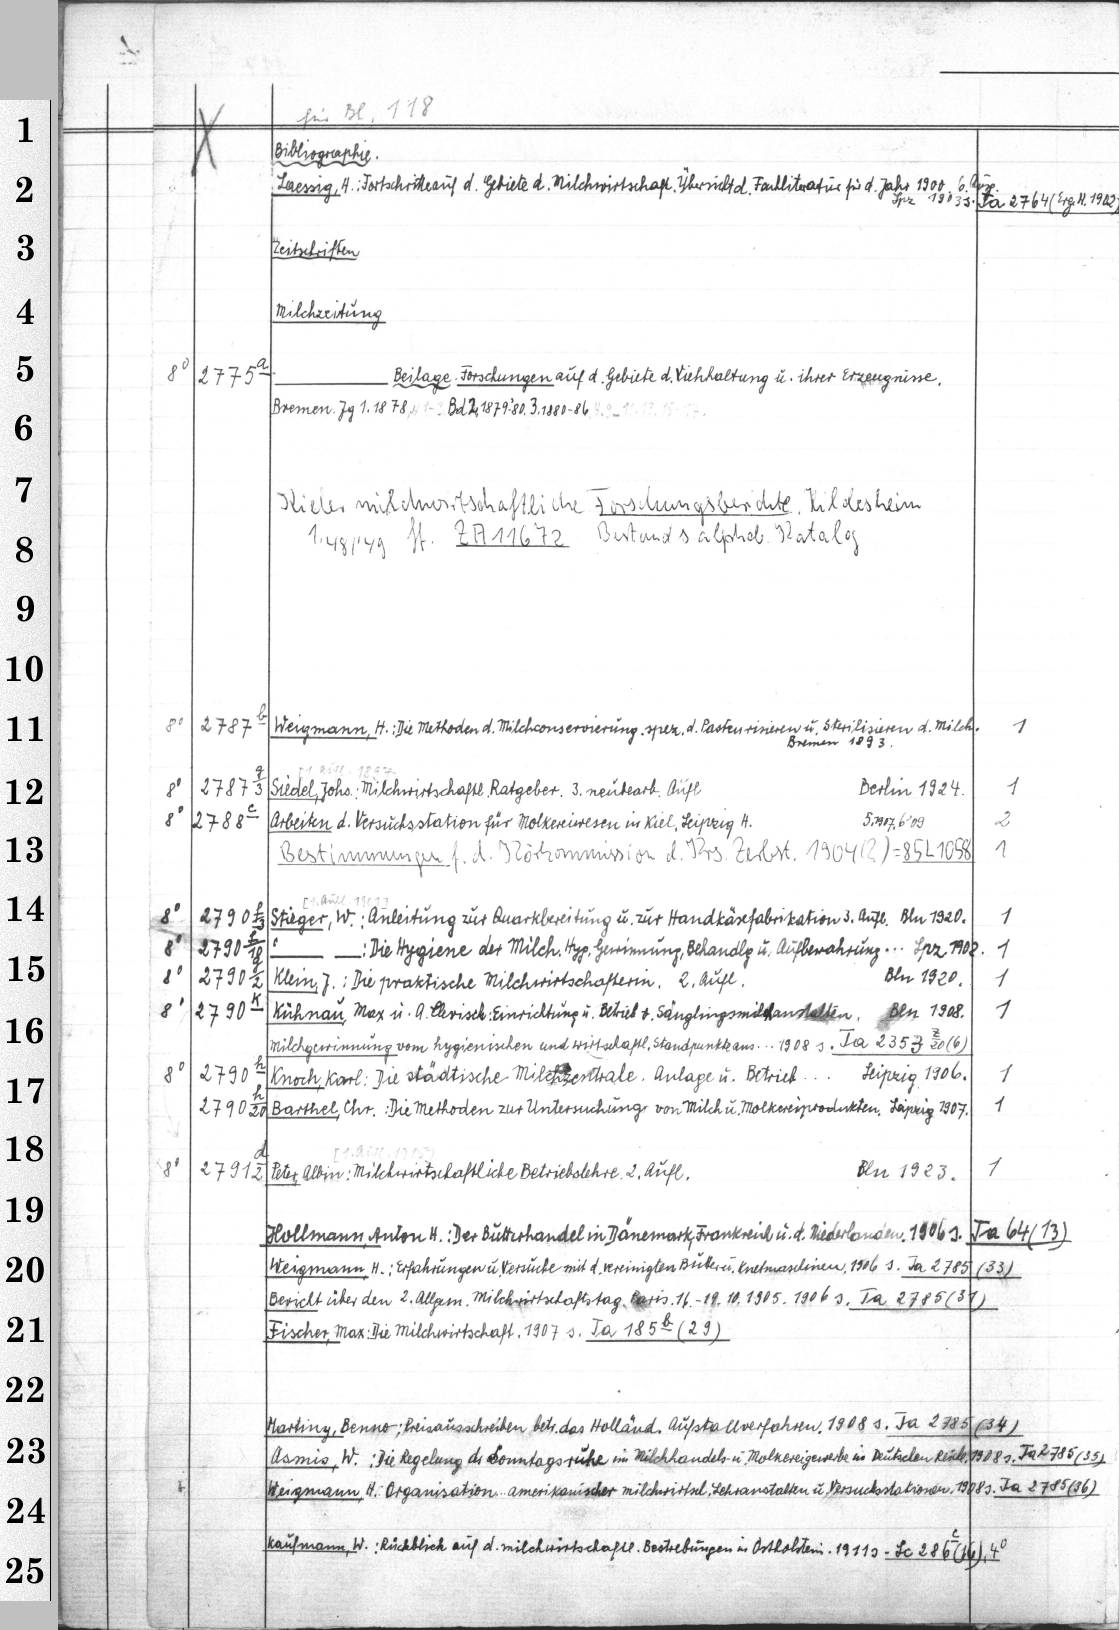 für Bl. 118
1
Bibliographie.
2
Laessig, H.: Fortschritte auf d. Gebiete d. Milchwirtschaft. Übersicht d. Fachliteratur für d. Jahr 1900. 6. Ausg.
Lpz 1903 s. Ta 2764 (Erg. H. 1902)
3
Zeitschriften
4
Milchzeitung
5
8° 2775 a Beilage. Forschungen auf d. Gebiete d. Viehhaltung u. ihrer Erzeugnisse.
6
Bremen. Jg 1. 1878, Bd 2, 1879-80. 3. 1880-86
7
Kieler milchwirtschaftliche Forschungsberichte. Hildesheim
8
1.48/49 ff. ZA 11672 Bestand s. alphab. Katalog
9
10
11
8° 2787 b Weigmann, H.: Die Methoden d. Milchconservierung, spez. d. Pasteurisieren u. Sterilisieren d. Milch. 1
Bremen 1893.
[1. Aufl. 1897]
12
8° 2787 g/3 Siedel, Johs.: Milchwirtschaftl. Ratgeber. 3. neubearb. Aufl Berlin 1924. 1
8° 2788 c Arbeiten d. Versuchsstation für Molkereiwesen in Kiel, Leipzig H. 5.1907, 6.'09 2
13
Bestimmungen f. d. Körkommission d. Krs. Zerbst. 1904(?) =85L1058 1
14
8° 2790 f/3 Stieger, W.: Anleitung zur Quarkbereitung u. zur Handkäsefabrikation 3. Aufl. Bln 1920. 1
8° 2790 f/18 : Die Hygiene der Milch. Hyg. Gewinnung, Behandlg u. Aufbewahrung... Lpz 1902. 1
15
8° 2790 g/2 Klein, J.: Die praktische Milchwirtschafterin. 2. Aufl. Bln 1920. 1
8° 2790 k Kühnau, Max u. A. Clevisch: Einrichtung u. Betrieb v. Säuglingsmilchanstalten. Bln 1908. 1
16
Milchgewinnung vom hygienischen und wirtschaftl. Standpunkte aus... 1908 s. Ta 2357 z/20 (6)
17
8° 2790 h Knoch, Karl: Die städtische Milchzentrale. Anlage u. Betrieb... Leipzig 1906. 1
2790 h/20 Barthel, Chr.: Die Methoden zur Untersuchung von Milch u. Molkereiprodukten. Leipzig 1907. 1
18
8° 2791 d/2 Peter, Albin: Milchwirtschaftliche Betriebslehre. 2. Aufl. Bln 1923. 1
19
Hollmann, Anton H.: Der Butterhandel in Dänemark, Frankreich u. d. Niederlanden. 1906 s. Ta 64 (13)
20
Weigmann, H.: Erfahrungen u. Versuche mit d. vereinigten Butter u. Knetmaschinen, 1906 s. Ta 2785 (33)
Bericht über den 2. Allgem. Milchwirtschaftstag. Paris. 16.-19. 10. 1905. 1906 s. Ta 2785 (31)
21
Fischer, Max: Die Milchwirtschaft. 1907 s. Ta 185 b (29)
22
Martiny, Benno: Preisausschreiben betr. das Holländ. Aufstallverfahren. 1908 s. Ta 2785 (34)
23
Asmis, W.: Die Regelung der Sonntagsruhe im Milchhandels- u. Molkereigewerbe im Deutschen Reich. 1908 s. Ta 2785 (35)
24
Weigmann, H.: Organisation.. amerikanischer milchwirtsch. Lehranstalten u. Versuchsstationen. 1908 s. Ta 2785 (36)
25
Kaufmann, W.: Rückblick auf d. milchwirtschaftl. Bestrebungen in Ostholstein. 1911 s. Lc 286 c (16), 4°